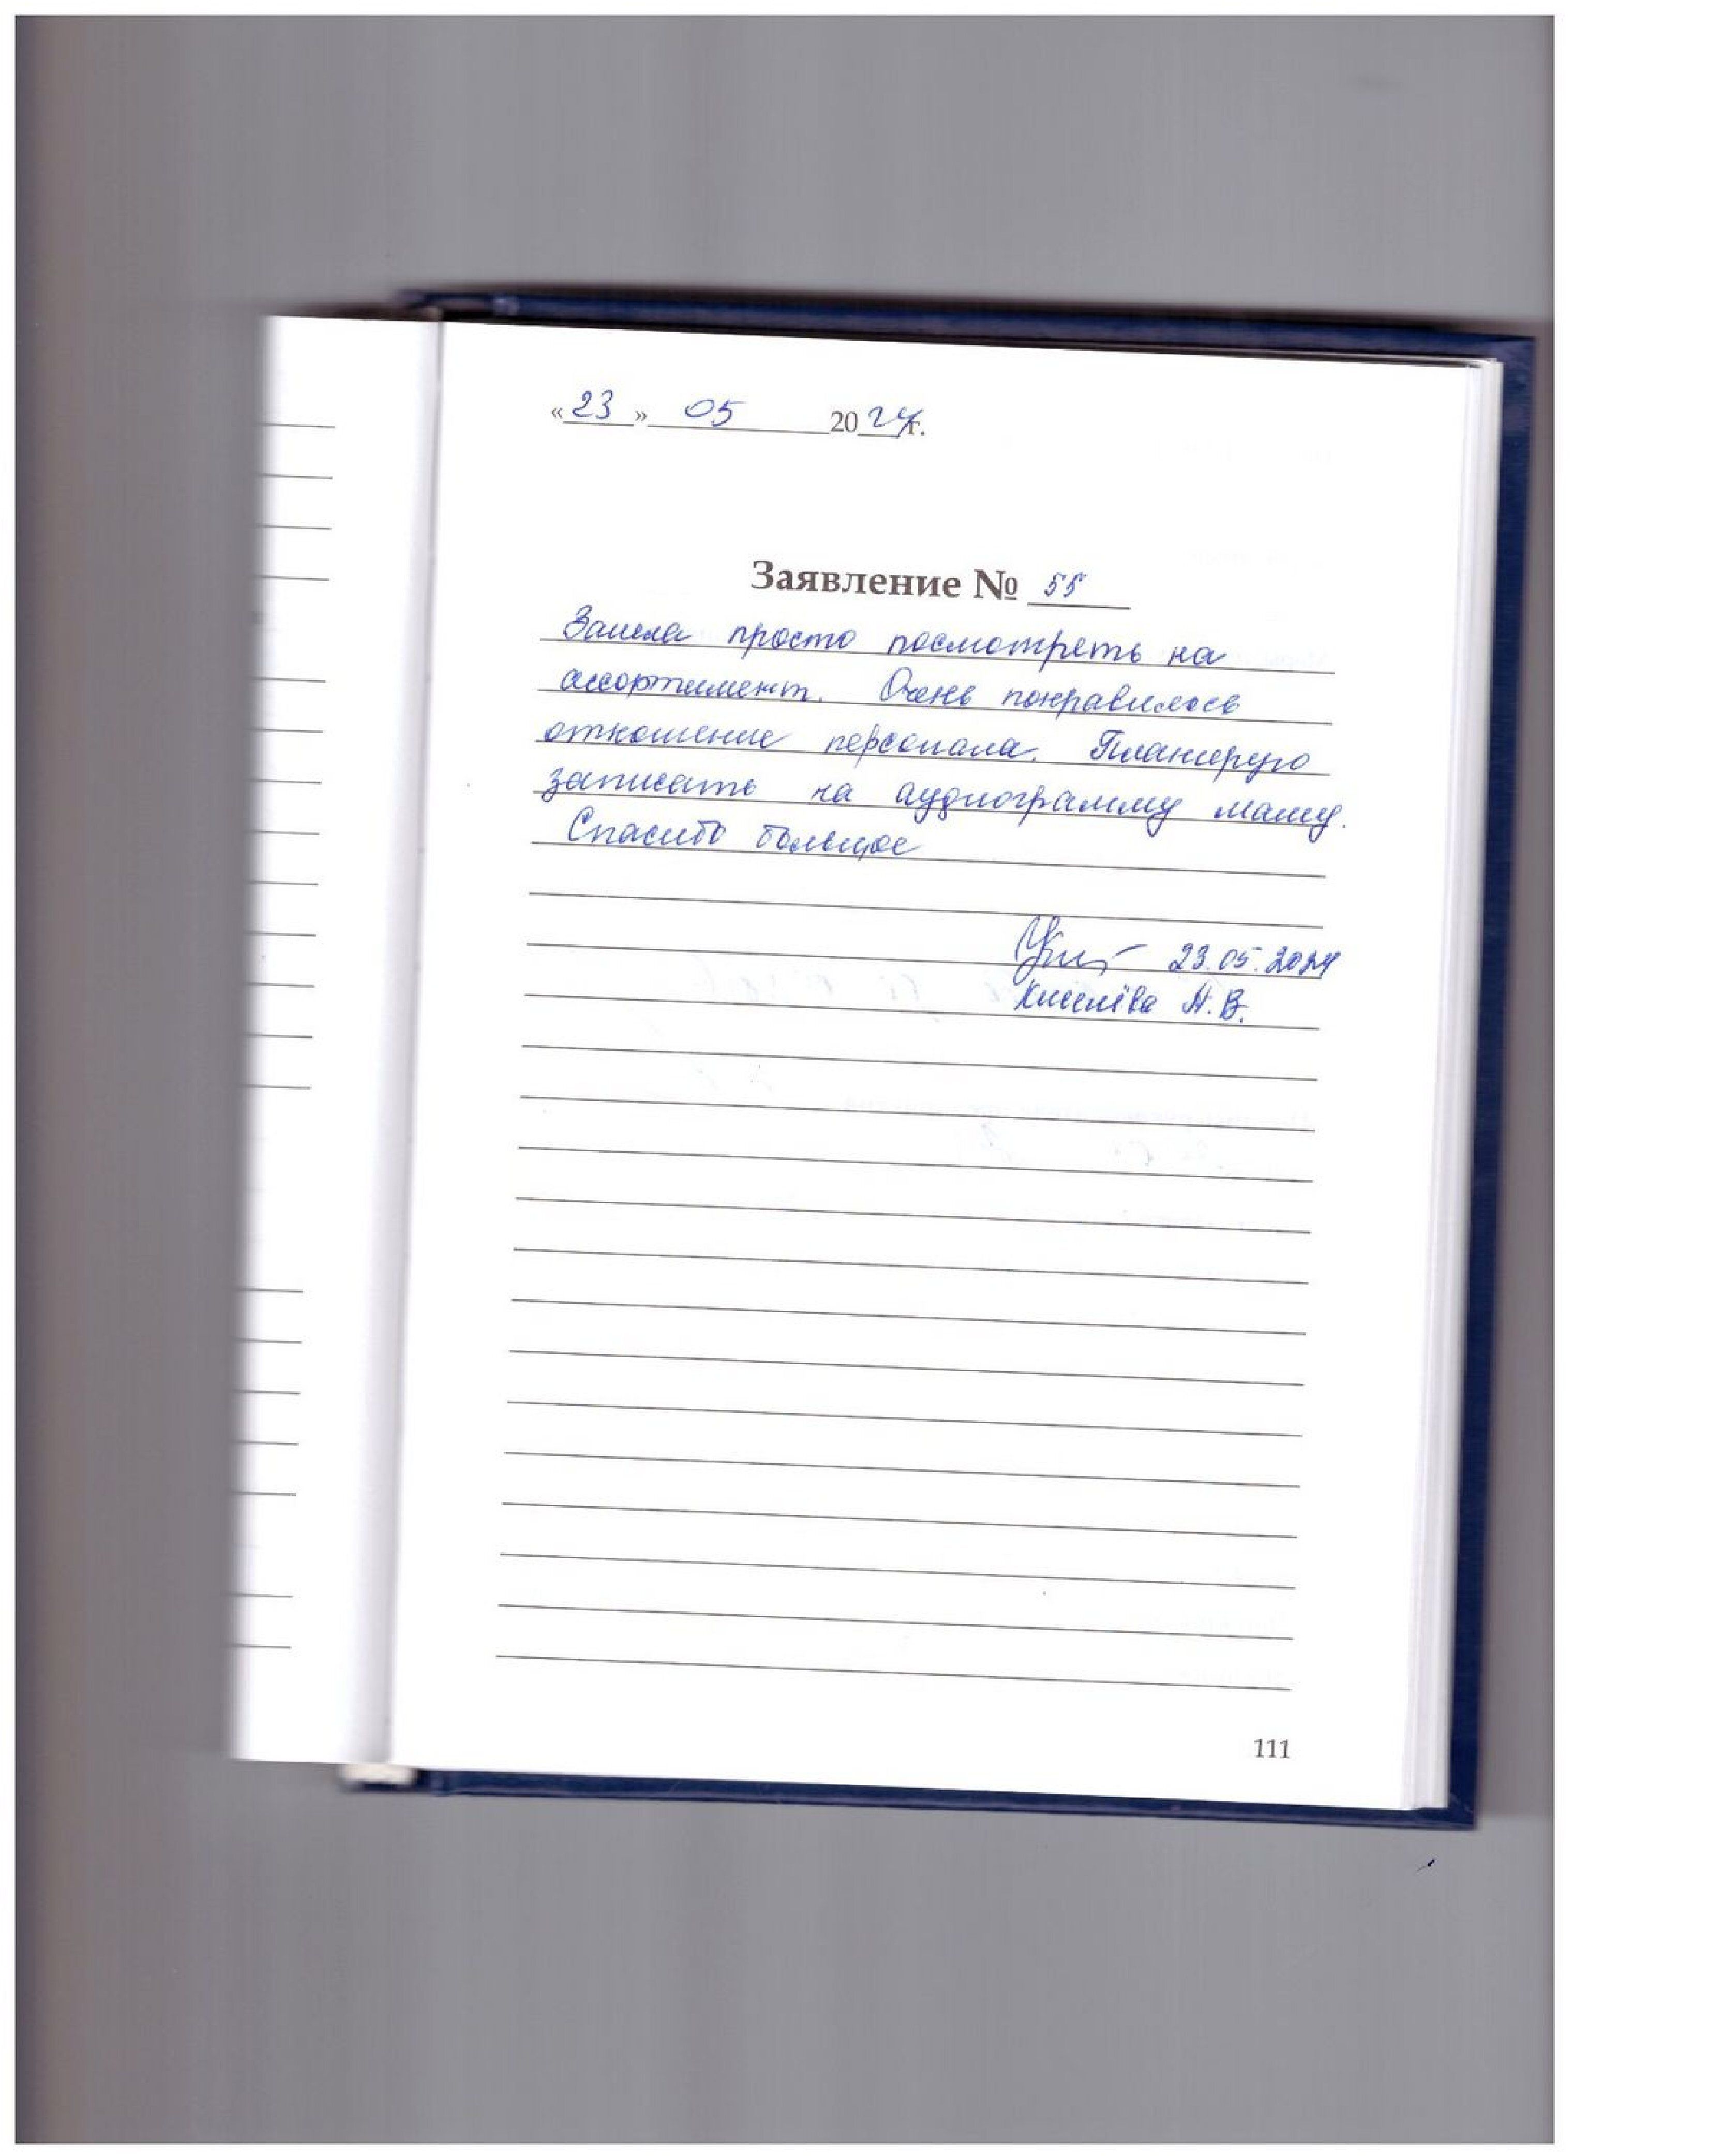 «23» 05 2024г.
Заявление № 55
Зашла просто посмотреть на
ассортимент. Очень понравилось
отношение персонала. Планирую
записать на аудиограмму маму.
Спасибо большое
23.05.2024
Киселёва Н.В.
111